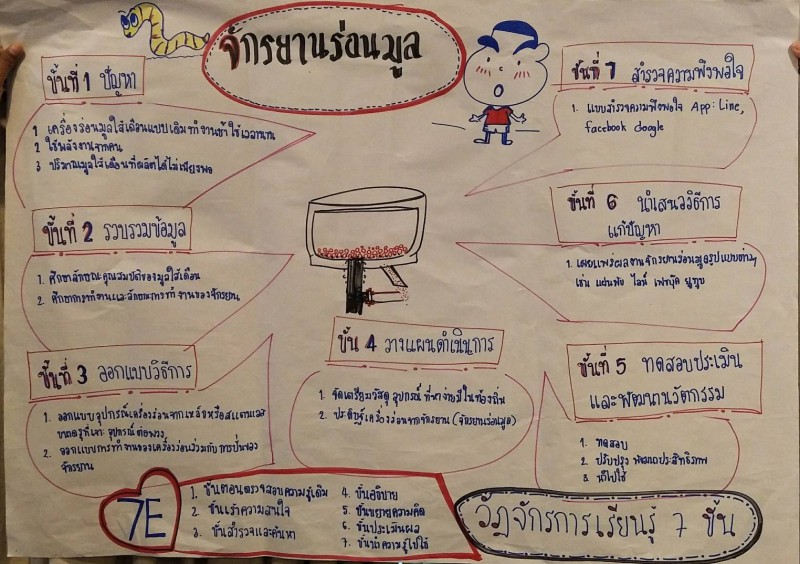 จักรยานร่อนมูล
ขั้นที่ 1 ปัญหา
1 เครื่องร่อนมูลไส้เดือนแบบเดิมทำงานช้าใช้เวลานาน
2 ใช้พลังงานจากคน
3 ปริมาณมูลไส้เดือนที่ผลิตได้ไม่เพียงพอ
ขั้นที่ 2 รวบรวมข้อมูล
1. ศึกษาลักษณะคุณสมบัติของมูลไส้เดือน
2 ศึกษาการทำงานและลักษณะการทำงานของจักรยาน
ขั้นที่ 3 ออกแบบวิธีการ
1. ออกแบบอุปกรณ์เครื่องร่อนจากเหล็กหรือสแตนเลส
อุปกรณ์ต่อพวง
2. ออกแบบการทำงานของเครื่องร่อนร่วมกับการปั่นของ
จักรยาน
ขั้น 4 วางแผนดำเนินการ
1. จัดเตรียมวัสดุ อุปกรณ์ ที่หาง่ายมีในท้องถิ่น
2. ประดิษฐ์เครื่องร่อนจากจักรยาน (จักรยานร่อนมูล)
ขั้นที่ 5 ทดสอบประเมิน
และพัฒนานวัตกรรม
1. ทดสอบ
2. ปรับปรุง พัฒนาประสิทธิภาพ
3. นำไปใช้
ขั้นที่ 6 นำเสนอวิธีการ
แก้ปัญหา
1. เผยแพร่ผลงานจักรยานร่อนมูลรูปแบบต่างๆ
เช่น แผ่นพับ ไลน์ เฟซบุ๊ค ยูทูบ
ขั้นที่ 7 สำรวจความพึงพอใจ
1. แบบสำรวจความพึงพอใจ App: Line,
facebook Google
7E
1. ขั้นตอนตรวจสอบความรู้เดิม
2. ขั้นเร้าความสนใจ
3. ขั้นสำรวจและค้นหา
4. ขั้นอธิบาย
5. ขั้นขยายความคิด
6. ขั้นประเมินผล
7. ขั้นนำความรู้ไปใช้
วัฏจักรการเรียนรู้ 7 ขั้น